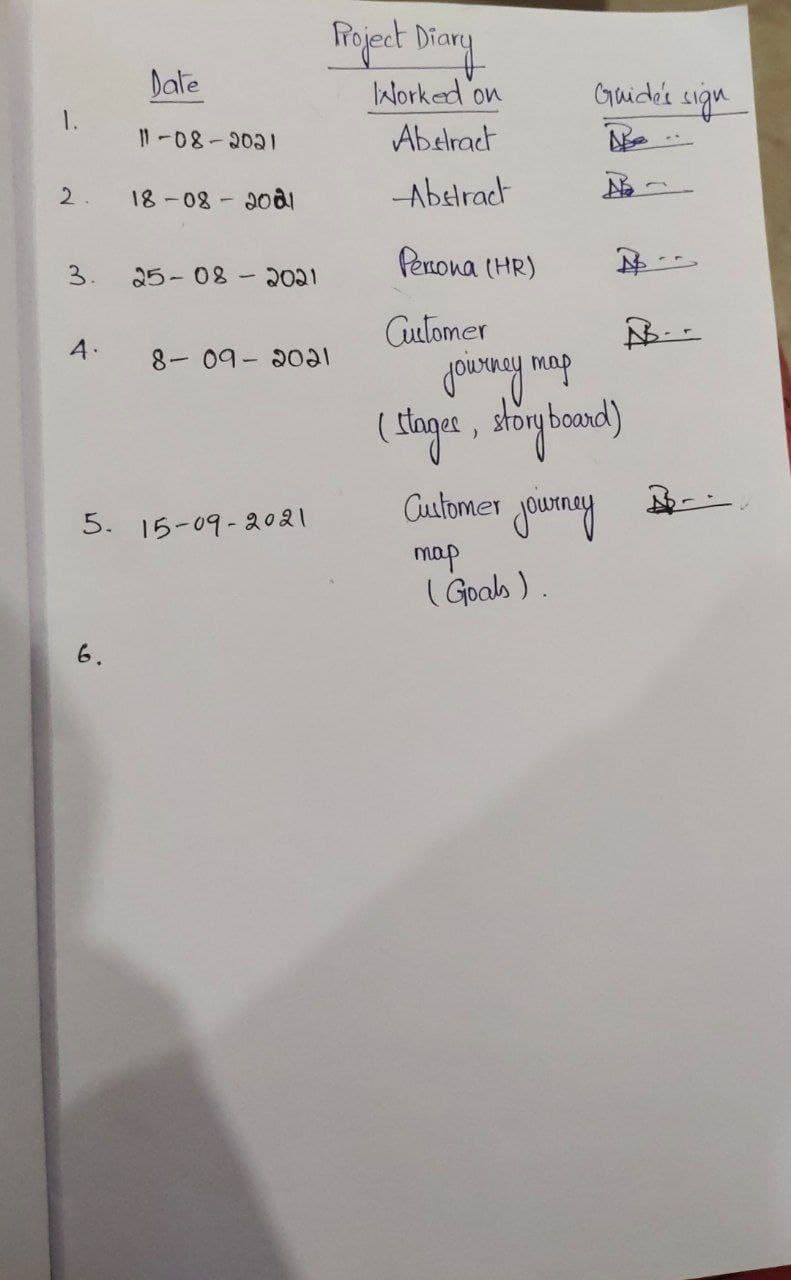 Project Diary
Date Worked on Guide's sign
1. 11-08-2021 Abstract
2. 18-08-2021 Abstract
3. 25-08-2021 Persona (HR)
4. 8-09-2021 Customer
journey map
(stages, storyboard)
5. 15-09-2021 Customer journey
map
(Goals).
6.